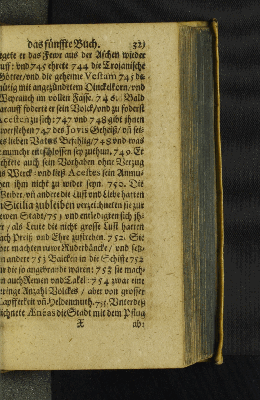 das fünffte Buch. 323
gete er das Fewr aus der Aschen wieder
uff: vnd 745 ehrete 744 die Trojanische
Götter/vnd die geheime Vestam 745 de
mütig mit angezündtem Dinckelkorn/vnd
Weyrauch im vollen Fasse. 746. Bald
darauff fodert er sein Volck/vnd zu foderst
Acesten zu sich: 747 vnd 748 gibt ihnen
zuverstehen 747 des Jovis Geheiß/ vñ sei-
es lieben Vaters Beschlag/748 vnd was
r nunmehr entschlossen sey zuthun. 749. Er
setzte auch sein Vorhaben ohne Verzug
ns Werck: vnd ließ Acestes sein Anmu-
hen ihm nicht zu wider seyn. 750. Die
Weiber/vñ andere die Lust vnd Liebe hatten
n Sicilia zubleiben verzeichneten sie zur
ewen Stadt/751 vnd entledigten sich ih-
r / als Leute die nicht grosse Lust hatten
ach Preiß vnd Ehre zustreben. 752. Sie
ber machten newe Ruderbäncke/ vnd setz-
n andere 753 Balcken in die Schiffe 752
ür die so angebrande waren: 753 sie mach-
n auch Riemen vnd Takel: 754 zwar eine
eringe Anzahl Volckes / aber von grosser
Tapfferkeit vñ Heldenmuth. 755. Unterdeß
ichnete Æneas die Stadt mit dem Pflug
X ab: